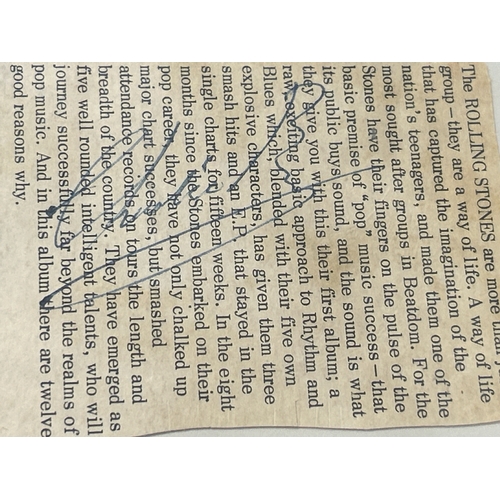 The ROLLING STONES are more than
group – they are a way of life. A way of life
that has captured the imagination of the
nation's teenagers, and made them one of the
most sought after groups in Beatdom. For the
Stones have their fingers on the pulse of the
basic premise of "pop" music success – that
its public buys sound, and the sound is what
they give you with this, their first album; a
raw, exciting basic approach to Rhythm and
Blues which blended with their five own
explosive characters has given them three
smash hits and an E.P. that stayed in the
single charts for fifteen weeks. In the eight
months since the Stones embarked on their
pop career, they have not only chalked up
major chart successes, but smashed
attendance records on tours the length and
breadth of the country. They have emerged as
five well rounded intelligent talents, who will
journey successfully far beyond the realms of
pop music. And in this album there are twelve
good reasons why.